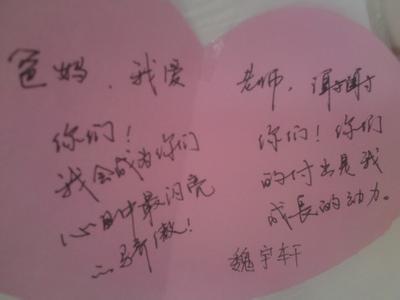 爸妈，我爱
你们！
我会成为你们
心目中最闪亮
的骄傲！
老师，谢谢
你们！你们
的付出是我
成長的动力。
魏宇轩